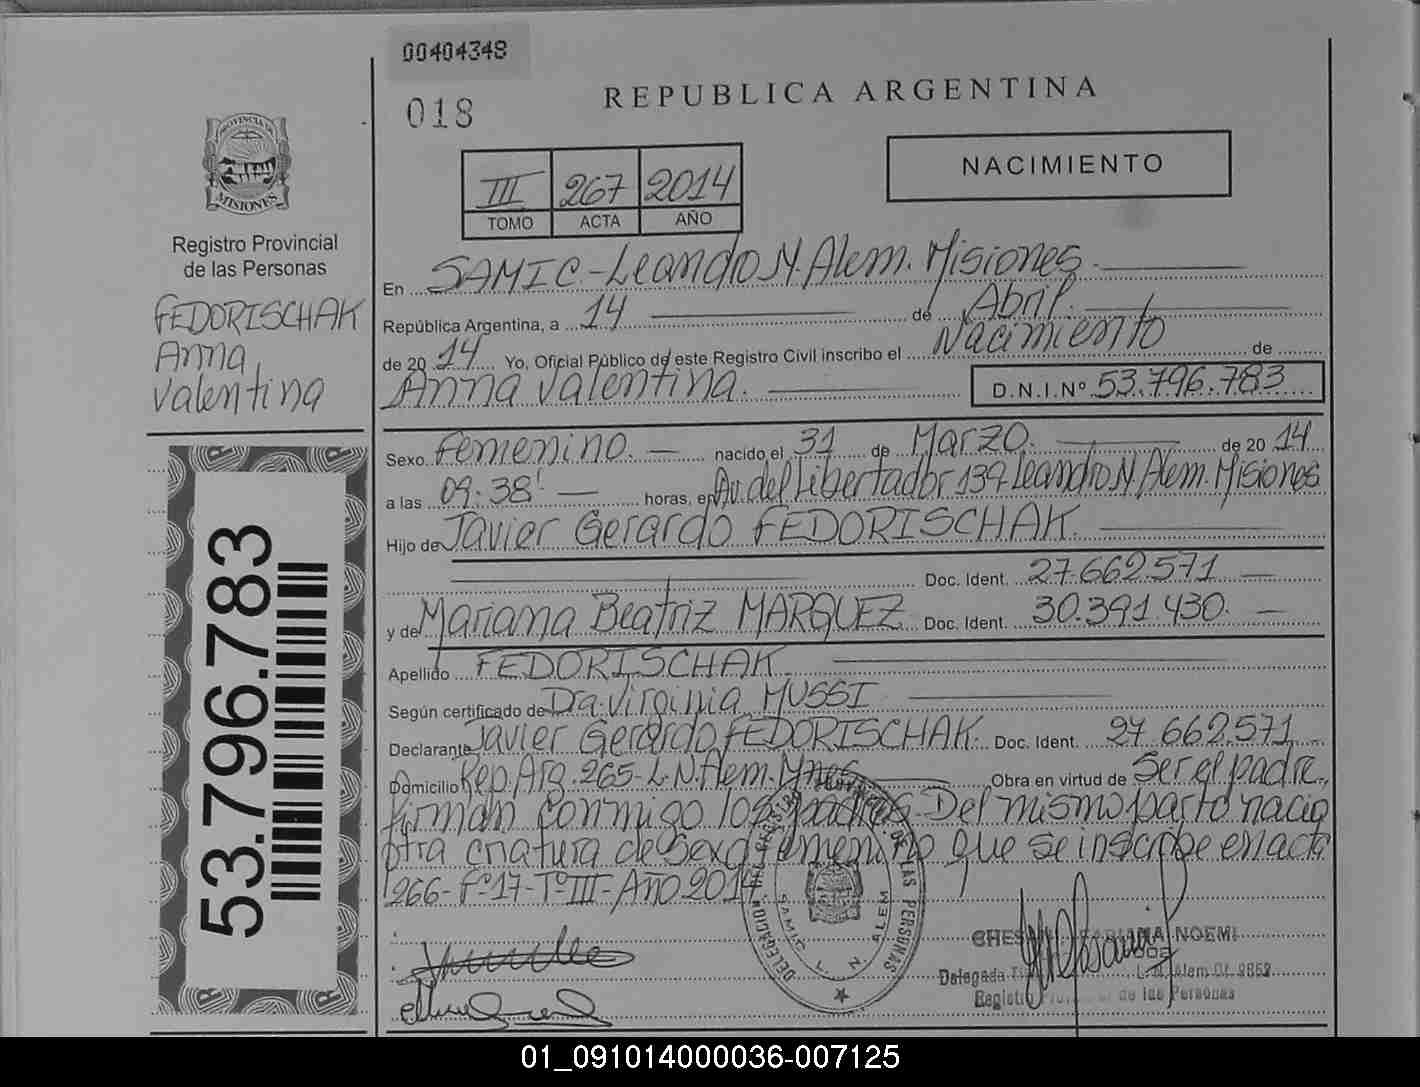 00404348
018
REPUBLICA ARGENTINA
NACIMIENTO
III 267 2014
TOMO ACTA AÑO
PROVINCIA DE MISIONES
Registro Provincial
de las Personas
FEDORISCHAK
Anna
Valentina
53.796.783
En SAMIC-Leandro N. Alem. Misiones
República Argentina, a 14 de Abril.
de 20 14 Yo, Oficial Público de este Registro Civil inscribo el Nacimiento de
Anna Valentina. D.N.I.Nº 53.796.783
Sexo Femenino. nacido el 31 de Marzo. de 20 14
a las 09:38' horas, en Av. del Libertador 139 Leandro N. Alem. Misiones
Hijo de Javier Gerardo FEDORISCHAK.
Doc. Ident. 27.662.571
y de Mariana Beatriz MARQUEZ Doc. Ident. 30.391.430.
Apellido FEDORISCHAK
Según certificado de Dra. Virginia MUSSI
Declarante Javier Gerardo FEDORISCHAK. Doc. Ident. 27.662.571
Domicilio Rep. Arg. 265-L.N. Alem. Mnes Obra en virtud de Ser el padre,
firman conmigo los padres-Del mismo parto nacio
otra criatura de sexo femenino que se inscribe en acta
266-Fº17-TºIII-Año 2014
DELEGACION DEL REGISTRO PROVINCIAL DE LAS PERSONAS
SAMIC L. N. ALEM
NOEMI
Delegada L. N. Alem Of.
Registro de las Personas
01_091014000036-007125